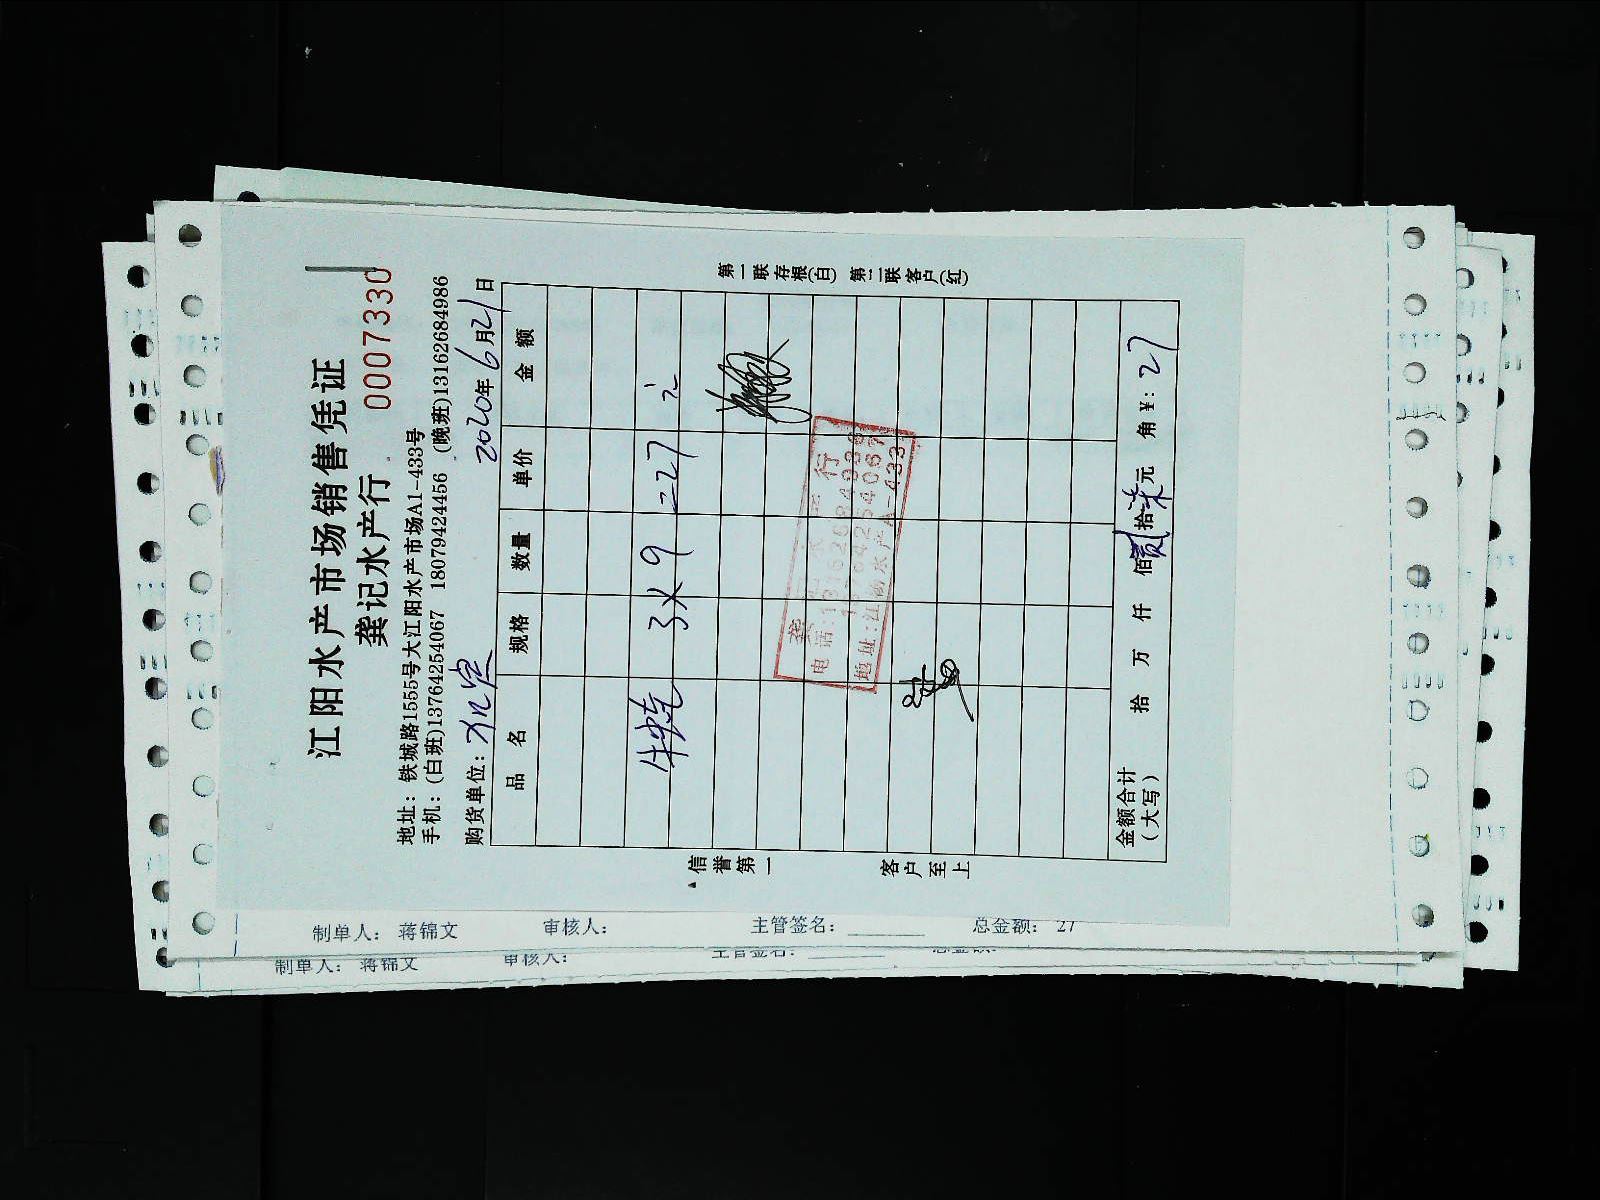 江阳水产市场销售凭证
龚记水产行 0007330
地址：铁城路1555号大江阳水产市场A1-433号
手机：(白班)13764254067 18079424456 (晚班)13162684986
购货单位： 2020年6月21日
品 名 规格 数量 单价 金 额
3×9=27元
龚 水 行
电话:13162684986
13764254067
地址:江阳水产A-433
金额合计
（大写） 拾 万 仟 佰贰拾柒元 角 ￥: 27
▲信誉第一 客户至上
第一联存根(白) 第二联客户(红)
制单人： 蒋锦文 审核人： 主管签名：________ 总金额： 27
制单人： 蒋锦文 审核人： 主管签名：________ 总金额：